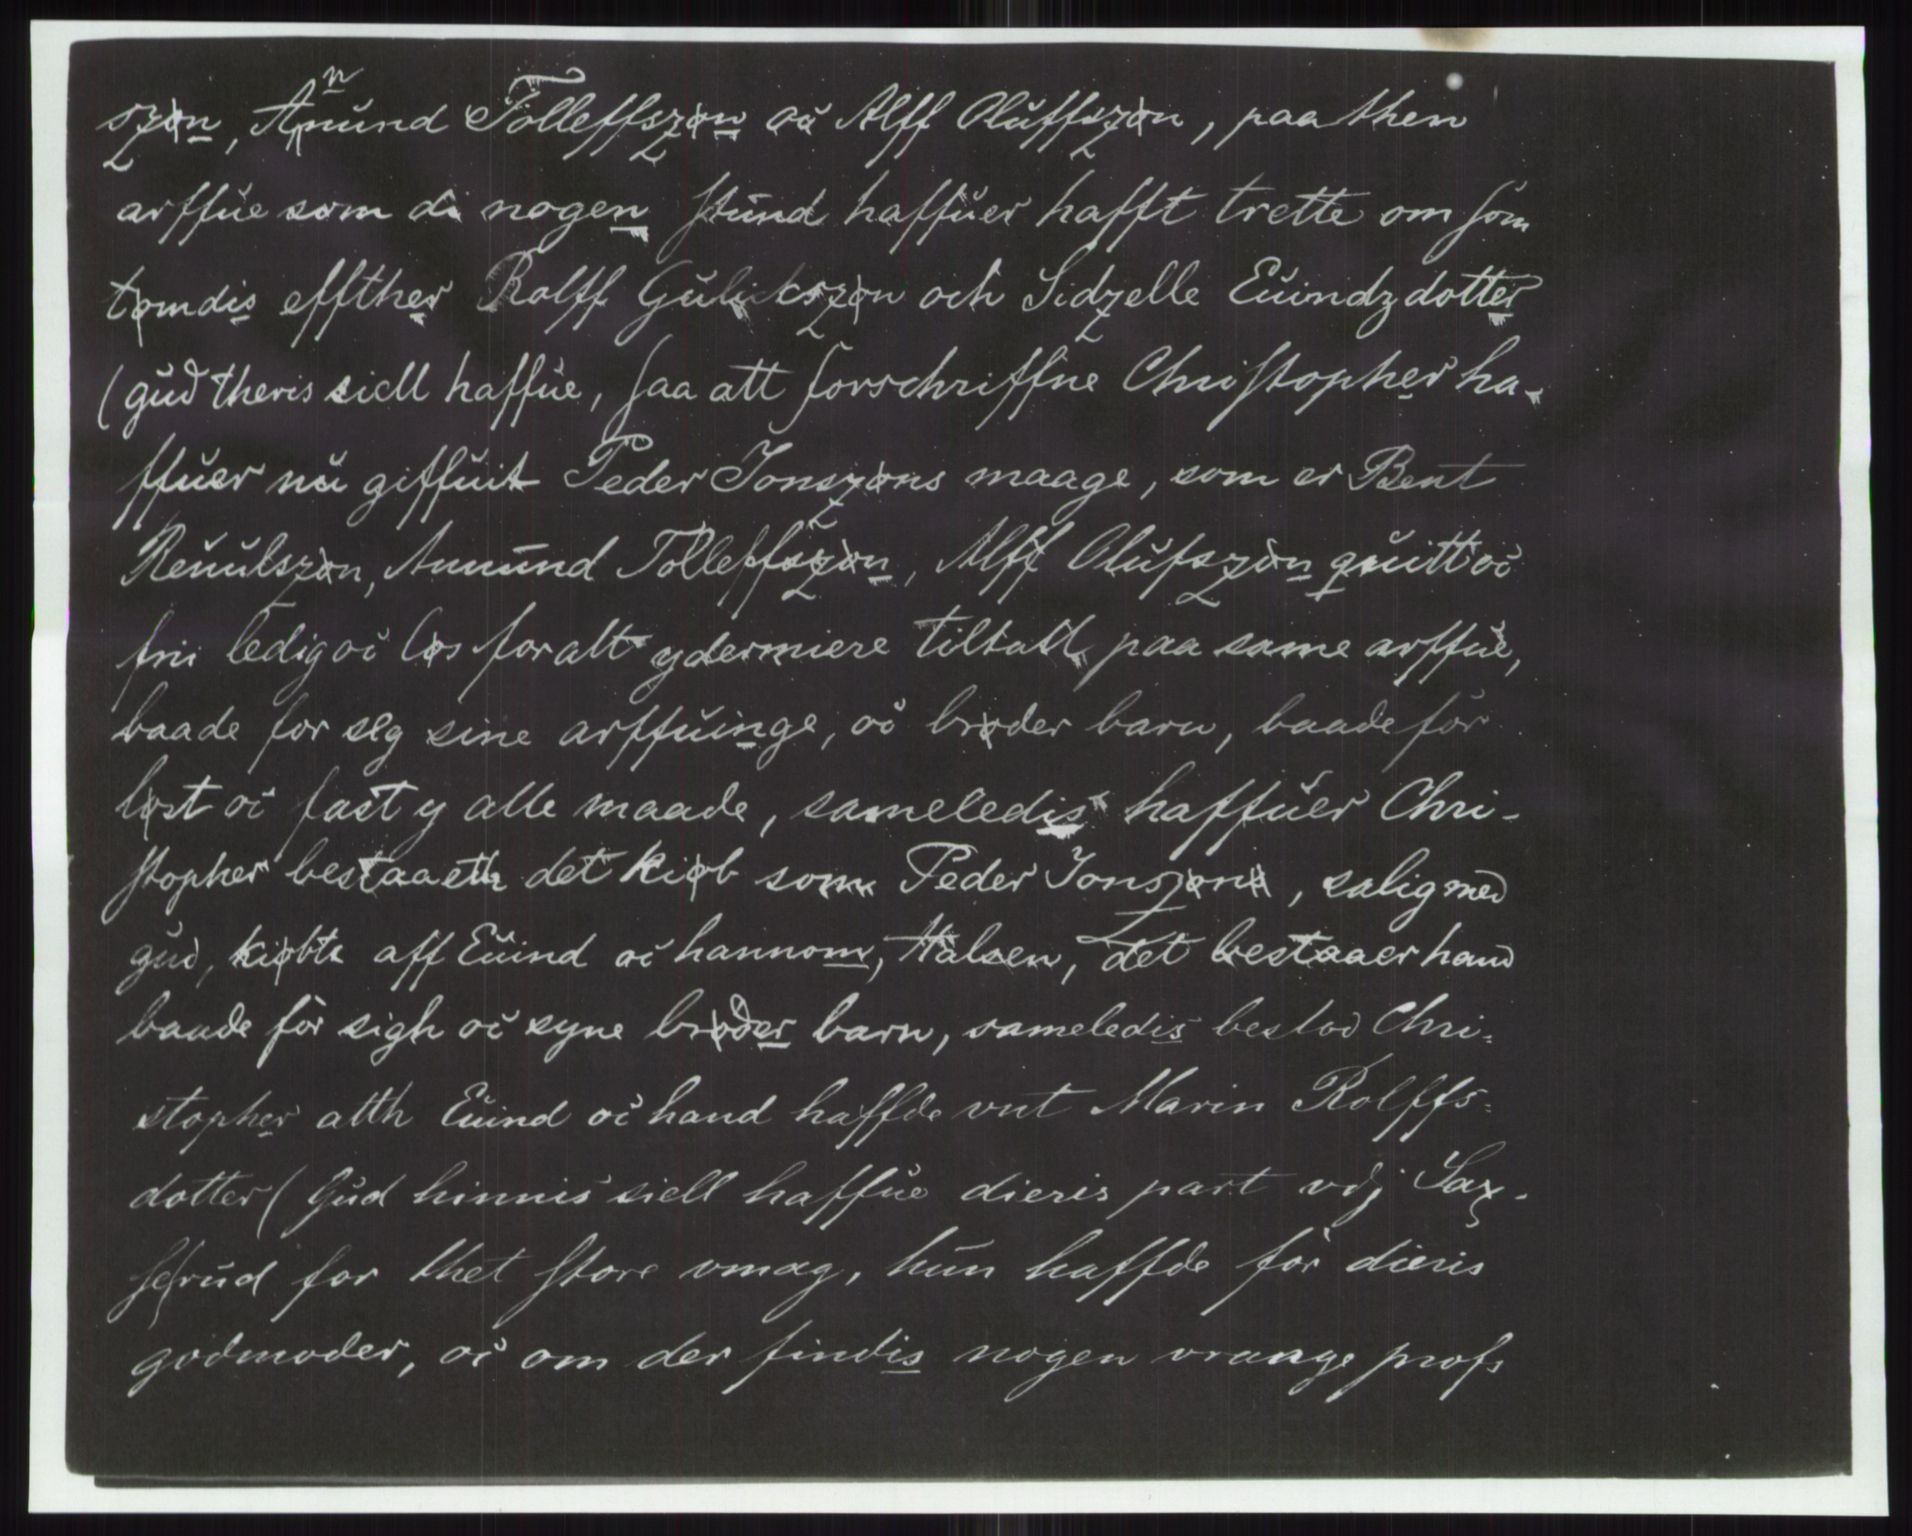 szøn, Anund Tolleffszøn oc Alff Oluffszøn, paa then
arffue som di nogen stund haffuer hafft trette om som
tømdis effther Rolff Gulickszøn och Sidzelle Euindzdotter
(gud theris siell haffue, saa att forschriffne Christopher ha-
ffuer nu giffuit Peder Jonszøns maage, som er Bent
Reuulszøn, Amund Tolleffszøn, Alff Olufszøn quitt oc
fri ledig oc løs for alt ydermiere tiltall paa same arffue,
baade for seg sine arffuinge, oc brøder barn, baade for
løst oc fast y alle maade, sameledis haffuer Chri-
stopher bestaaeth det kiøb som Peder Jonszøn, salig med
gud, kiøbte aff Euind oc hannom, Halsen, det bestaaer hand
baade for sigh oc syne brøder barn, sameledis bestod Chri-
stopher atth Euind oc hand haffde vnt Marin Rolffs-
dotter (Gud hinnis siell haffue dieris part vdj Sax-
serud for thet store vmag, hun haffde for dieris
godmoder, oc om der findis nogen vrange profs